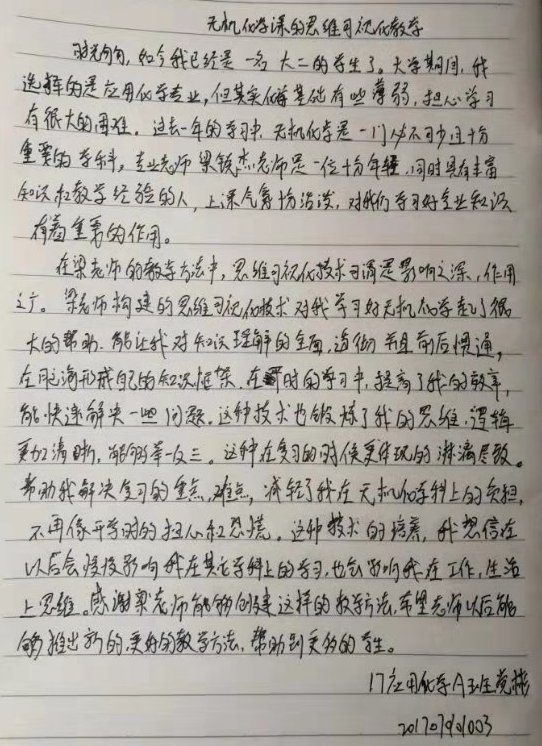 无机化学课的思维可视化教学
时光匆匆，如今我已经是一名大二的学生了。大学期间，我
选择的是应用化学专业，但其实化学基础有些薄弱，担心学习
有很大的困难。过去一年的学习中，无机化学是一门必不可少且十分
重要的学科，专业老师梁铁杰老师是一位十分年轻，同时具有丰富
知识和教学经验的人，上课气氛十分活泼，对我们学习好专业知识
有着重要的作用。
在梁老师的教学方法中，思维可视化技术可谓是影响之深，作用
之广。梁老师构建的思维可视化技术对我学习好无机化学起了很
大的帮助，能让我对知识理解的全面，透彻并且前后惯通，
在脑海形成自己的知识框架。在平时的学习中，提高了我的效率，
能快速解决一些问题，这种技术也锻炼了我的思维，逻辑
更加清晰，能够举一反三。这种在复习的时候更体现的淋漓尽致。
帮助我解决复习的重点，难点，减轻了我在无机化学科上的负担，
不再像开学时的担心和恐慌。这种技术的培养，我想信在
以后会慢慢影响我在其它学科上的学习，也会影响我在工作，生活
上思维。感谢梁老师能够创建这样的教学方法，希望老师以后能
够推出新的，更好的教学方法，帮助到更多的学生。
17应用化学A班